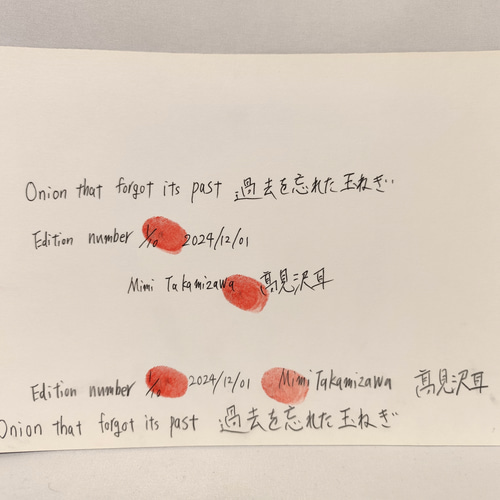 Onion that forgot its past 過去を忘れた玉ねぎ
Edition number 1/10 2024/12/01
Mimi Takamizawa 髙見沢耳
Edition number 1/10 2024/12/01 Mimi Takamizawa 髙見沢耳
Onion that forgot its past 過去を忘れた玉ねぎ